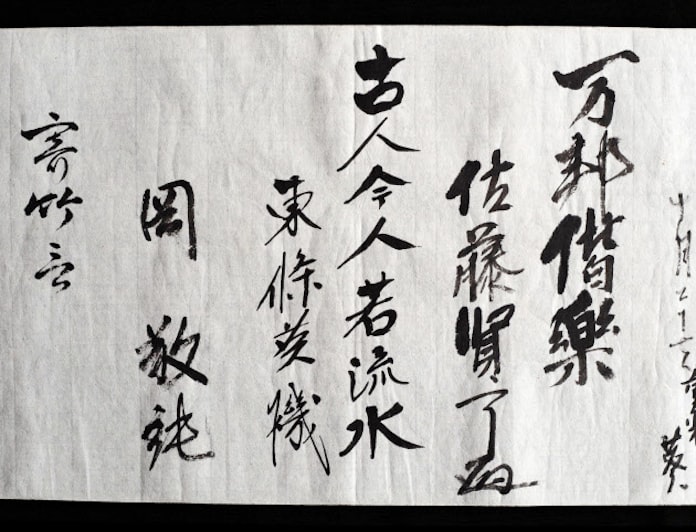 十月二十
万邦偕樂
佐藤賢了
古人今人若流水
東條英機
岡 敬純
寄竹